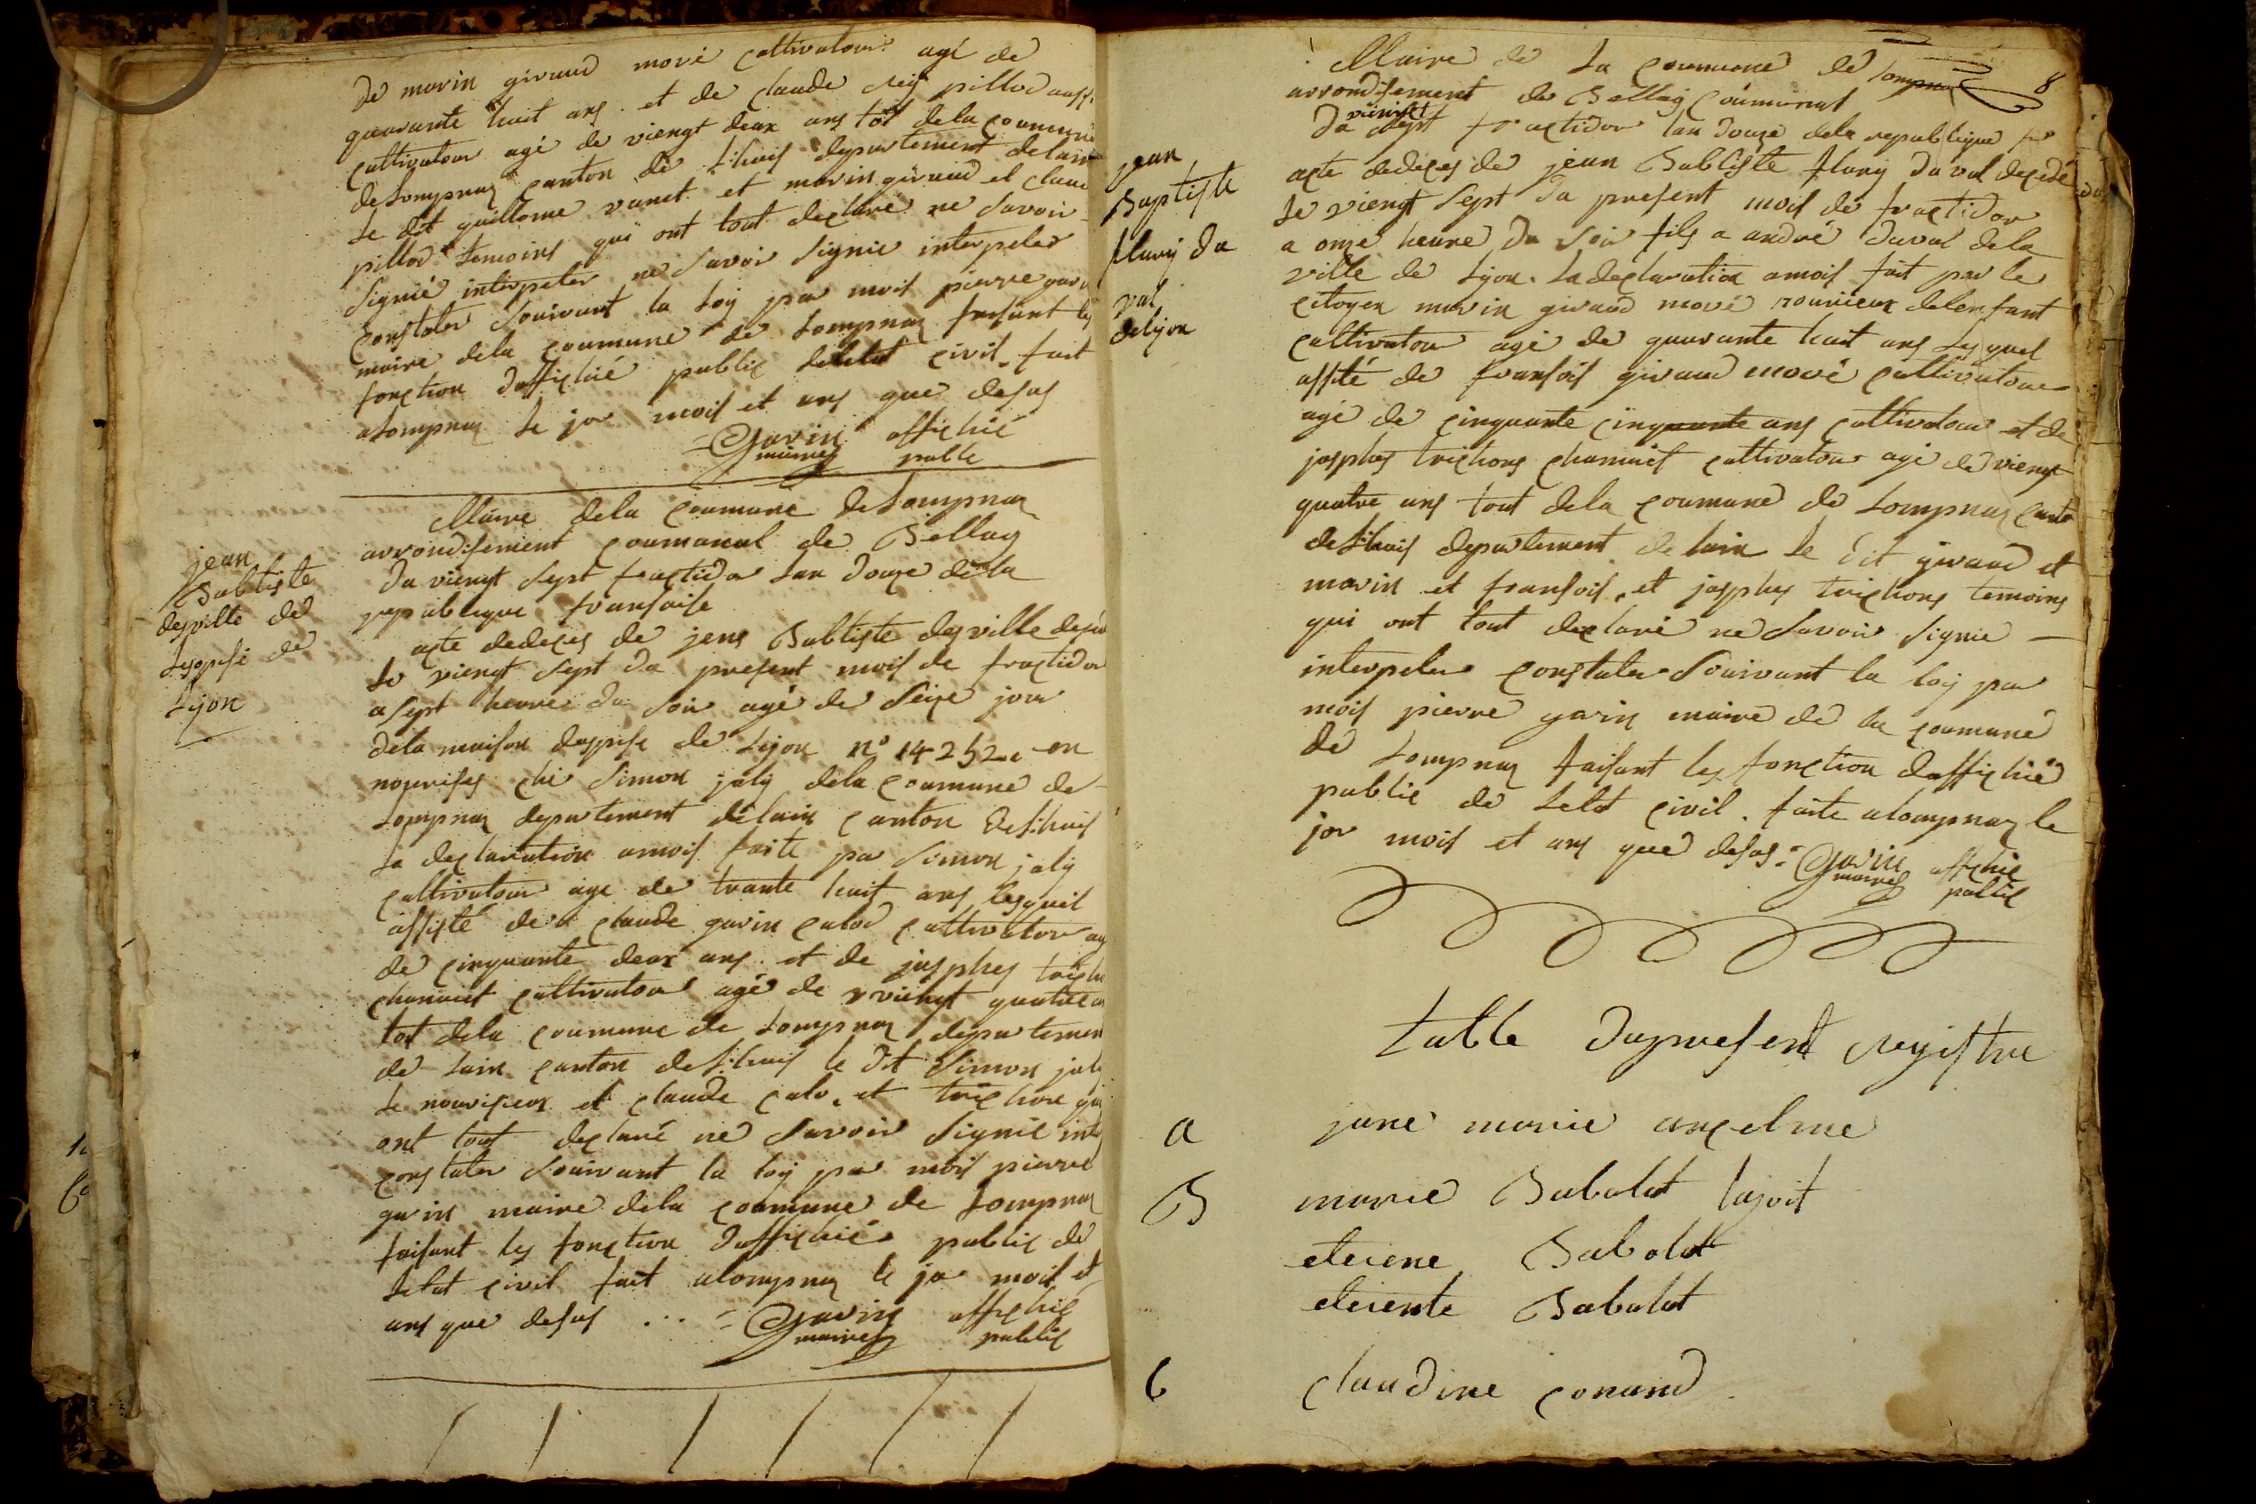 de marin giraud moré cultivatour agé de
quarante huit ans et de claude pillod
cultivatour agé de viengt deux ans tot dela coumune
de Lompnaz canton de S.huis departement delain
Le dit guillome vunet et marin giraud et claud
pillod temoins qui ont tout declaré ne Savoir
Signié interpeler ne Savoir Signie interpeler
constater Souivant la Loy par mois pierre garin
maire dela coumune de Lompnaz faisant les
fonction daffichié public deletat civil. fait
aLompnaz Le jor mois et ans que desus
Garin maire affichié
public
jean
Babtiste
desville de
Lyon
Maire dela coumune de Lompnaz
arrondisement coumunal de Bellay
Du viengt Sept fructidor Lan douze dela
republique fransaise
acte dedeces de jene Babtiste desville decede
Le viengt Sept du present mois de fructidor
a Sept heure du Soir agé de Seize jour
dela maison de Lyon n° 14252 en
nourises chi Simon joly dela coumune de
Lompnaz departement delain canton de S.huis
La declaration amois faite par Simon joly
cultivatour age de trante huit ans lesquel
assisté de claude garin calod cultivatour agé
de cinquante deux ans et de josphes
chamuit cultivatour agé de viengt quatre ans
tot dela coumune de Lompnaz departement
de Lain canton de S.huis le dit Simon joly
Le nourisieur et claude calo. et trichone qui
ont tout declaré ne Savoir Signié inter
constater Souivant la loy par mois pierre
garin maire dela coumune de Lompnaz
faisant les fonction daffichié public de
Letat civil fait alompnaz le jor mois et
ans que desus ... = Garin maire affichié
public
8
Maire de La coumune de Lompnaz
arrondisement de Bellay coumunal
viengt
Du Sept fructidor lan douze dela republique
jean
Baptiste
fluriy du
val
delyon
acte dedeces de jean Babtiste fluriy duval decedé
Le viengt Sept du present mois de fructidor
a onze heure du Soir fils a andré duval dela
ville de Lyon. La declaration amois fait par le
citoyen marin giraud moré nourisieur delenfant
cultivatour agé de quarante huit ans Lesquel
assité de fransois giraud moré cultivatour
agé de cinquante cinquante ans cultivatour et de
josphes trichons chamuit cultivatour agé de viengt
quatre ans tout dela coumune de Lompnaz canto
de S.huis departement de lain le dit giraud et
marin et fransois. et josphes trichons temoins
qui ont tout declaré ne Savoir Signié
interpeler constater Souivant la loy par
mois pierre garin maire de la coumune
de Lompnaz faisant les fonction dafficihié
public de Letat civil. faite alompnaz le
jor mois et ans que desus = Garin maire affichié
public
table dupresent registre
a jane marie ancelme
B marie Babolat lajoit
eteiene Babolat
eteiente Babolat
C claudine conand